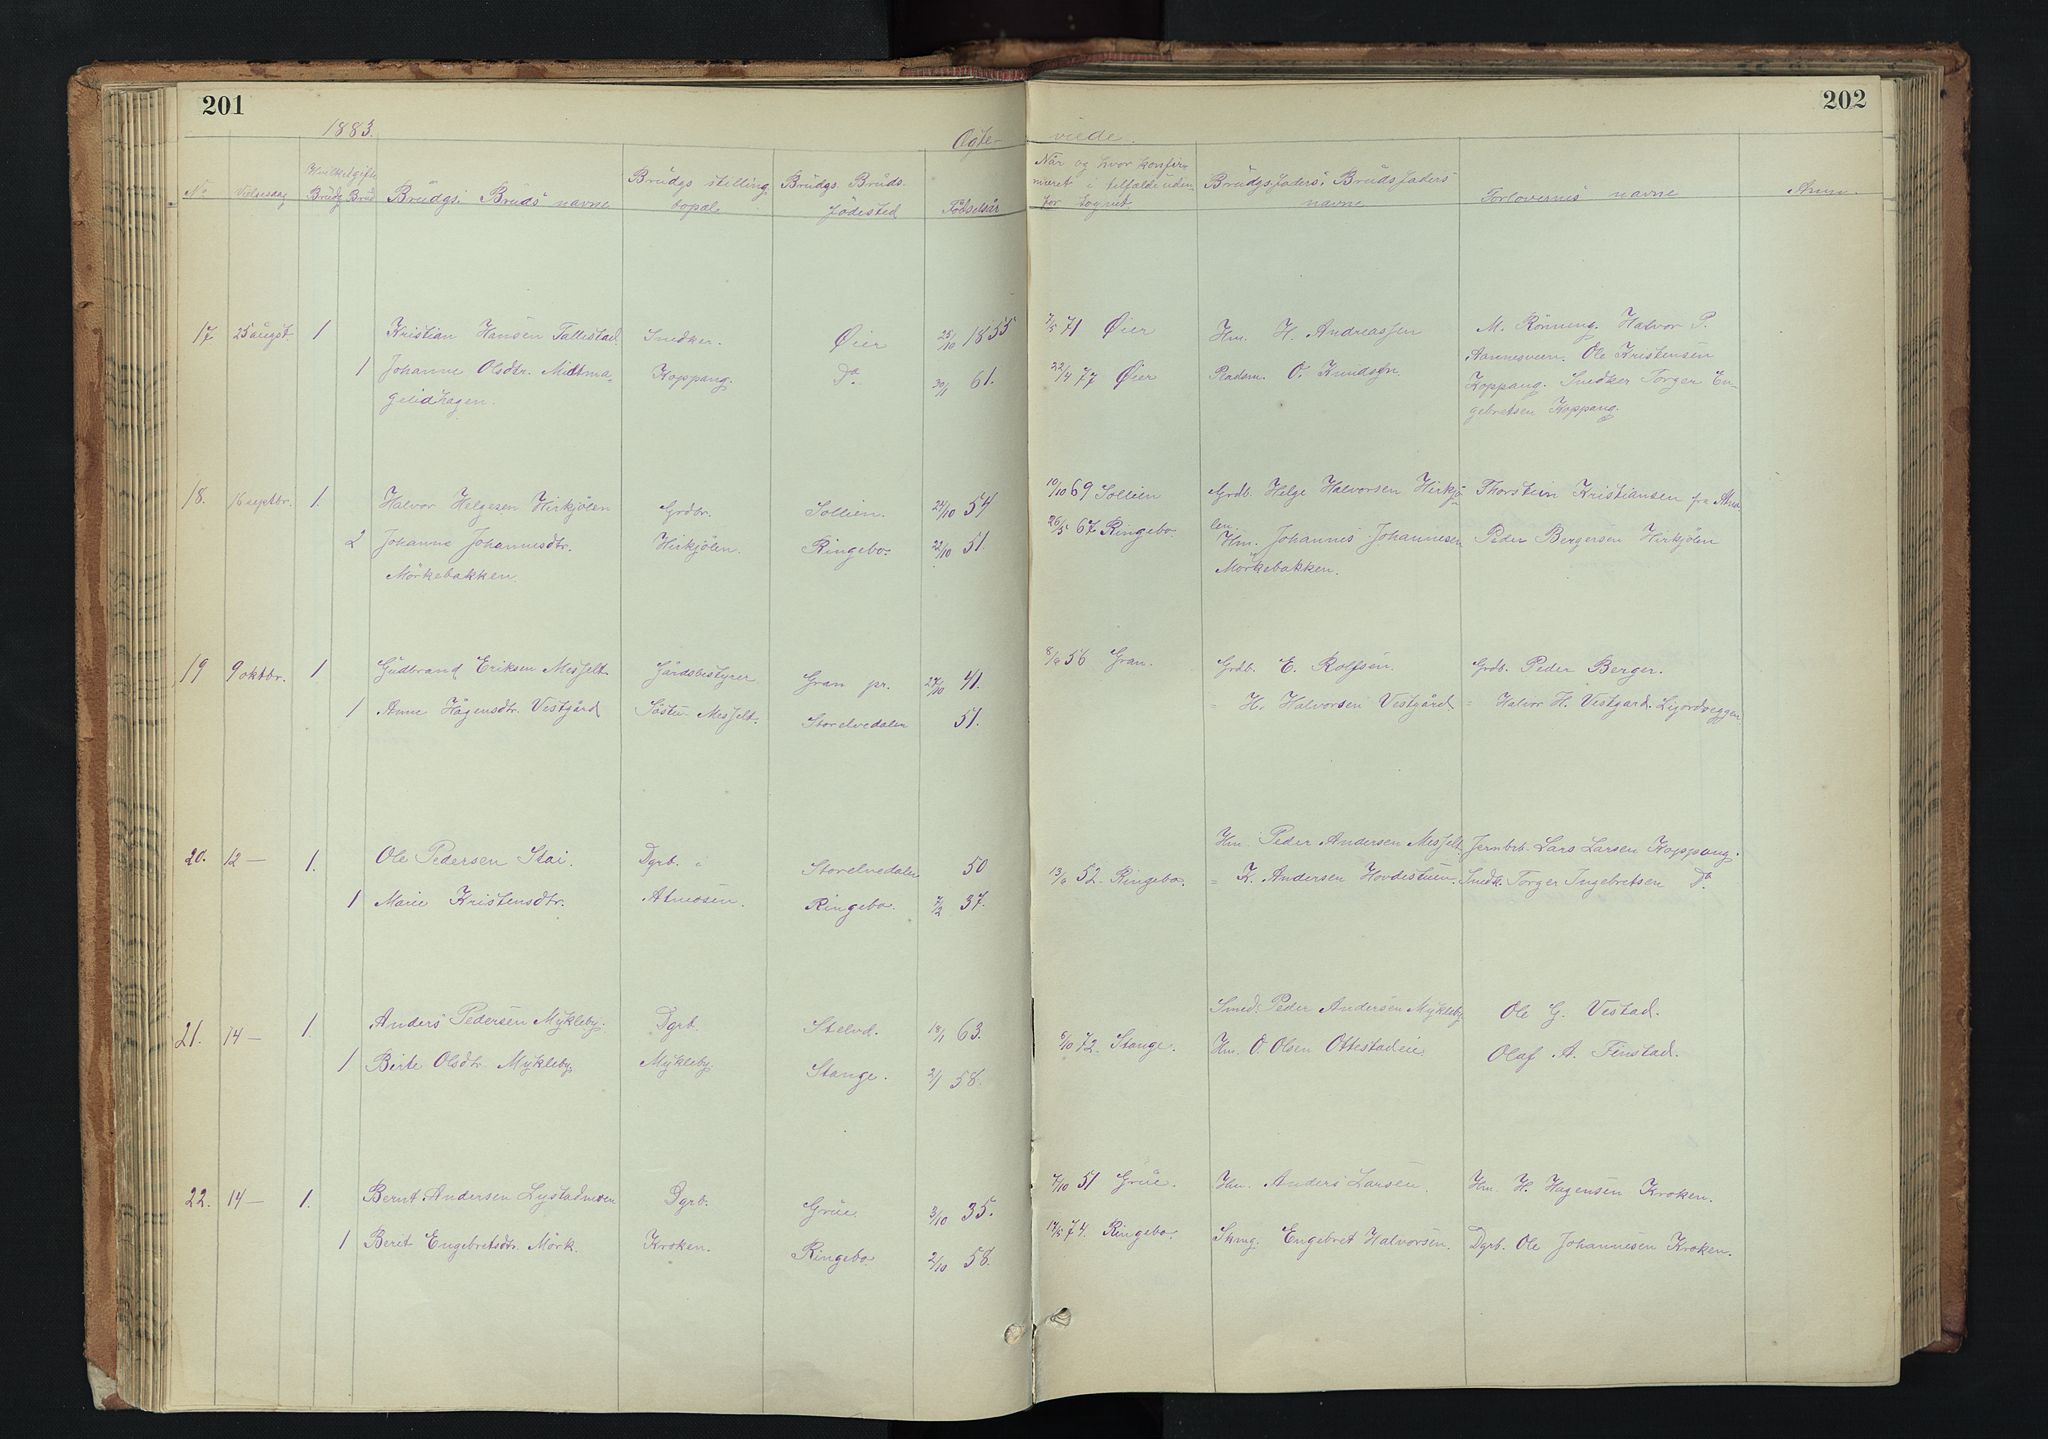 201
202
1883.
Ægte-
viede.
No
Vielsesdag
Brudg
Brud
Brudgs. Bruds navne
Brudgs stilling, bopæl
Brudgs. Bruds. Fødested
Fødselsår
Når og hvor konfirmeret i tilfælde uden for sognet
Brudgs faders, Bruds faders navne
Forlovernes navne
Anm.
17 25 augst. 1 Kristian Hansen Tallestad. Snedker. Øier 25/10 1855 7/5 71 Øier Hm. H. Andreassen M. Rönning. Halvor P.
Aannesveen. Ole Kristensen
1 Johanne Olsdtr. Midtma- Koppang. Do. 30/1 61. 22/4 77 Øier Radm. O. Knudsen Koppang. Snedker Torger En-
gelidhagen. gebretsen Koppang.
18. 16 septbr. 1. Halvor Helgesen Hirkjölen Grdbr. Sollien. 24/10 54 10/10 69 Sollien Grdb. Helge Halvorsen Hirkjö- Thorstein Kristiansen fra
len.
2 Johanne Johannesdtr. Hirkjölen. Ringebo. 22/10 51. 26/5 67 Ringebo. Hm. Johannes Johannesen Peder Bergersen Hirkjölen
Mörkebakken. Mörkebakken.
19 9 oktbr. 1 Gudbrand Eriksen Messelt. Gårdsbestyrer Gran pr. 27/10 41. 8/6 56 Gran. Grdb. E. Rolfsen. Grdb. Peder Berger.
1 Anne Hågensdtr. Vestgård Messelt. Storelvedalen 51. " H. Halvorsen Vestgård. " Halvor H. Vestgaard.
20. 12 — 1. Ole Pedersen Stai. Dgrb. Storelvedalen 50 Hm. Peder Andersen Messelt. Jernbrb. Lars Larsen Koppang.
1 Marie Kristensdtr. Atneosen. Ringebo. 7/2 37. 13/6 52. Ringebo. " K. Andersen Hovdestuen. Snedk. Torger Ingebretsen Do.
21. 14 — 1. Anders Pedersen Mykleby. Dgrb. Stelvd. 18/1 63. Smed. Peder Andersen Mykleby Ole G. Vestad.
1 Birte Olsdtr. Mykleby. Mykleby. Stange. 2/1 58. 6/10 72. Stange. Hm. O. Olsen Ottestadeie Olaf A. Finstad.
22. 14 — 1. Bernt Andersen Lystadmoen Dgrb. Grue. 3/10 35. 7/10 51 Grue. Hm. Anders Larsen. Hm. H. Hagensen Kroken.
1 Berit Engebretsdtr. Mörk. Kroken. Ringebo 2/10 58. 17/5 74. Ringebo. Skmg. Engebret Halvorsen. Dgrb. Ole Johannesen Kroken.